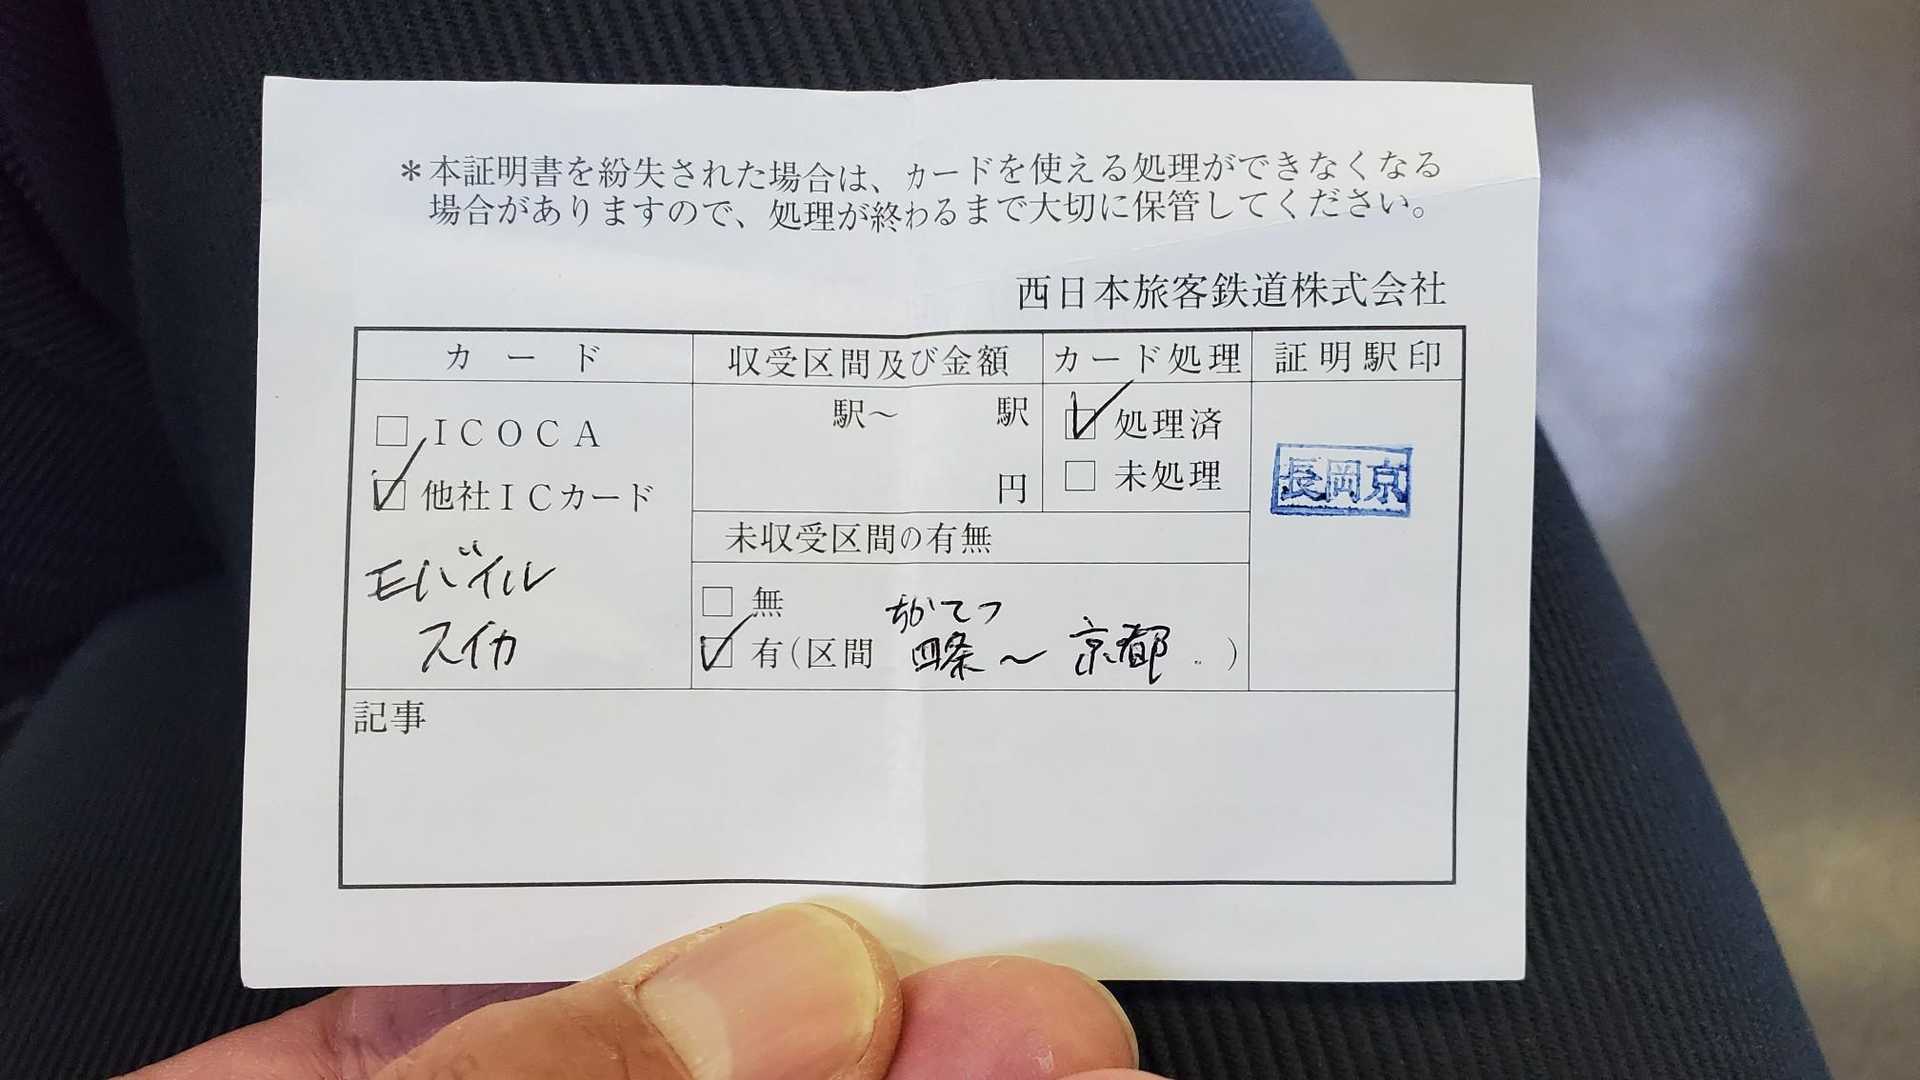 ＊本証明書を紛失された場合は、カードを使える処理ができなくなる
場合がありますので、処理が終わるまで大切に保管してください。
西日本旅客鉄道株式会社
カード
収受区間及び金額
カード処理
証明駅印
□ＩＣＯＣＡ
☑他社ＩＣカード
モバイル
スイカ
駅～　駅
円
☑処理済
□未処理
長岡京
未収受区間の有無
□無
ちかてつ
☑有（区間 四条～京都）
記事